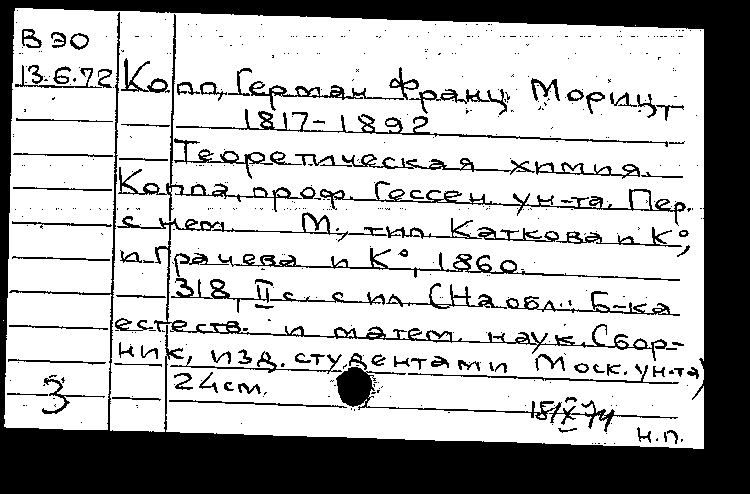 В ЭО
13.6.72 Копп, Герман Франц Мориц,
1817-1892.
Теоретическая химия.
Коппа, проф. Гессен. ун-та. Пер.
с нем. М., тип. Каткова и К°,
и Грачева и К°, 1860.
318, II с. с ил. (На обл.: Б-ка
естеств. и матем. наук. Сбор-
ник, изд. студентами Моск. ун-та)
3 24см.
н.п.